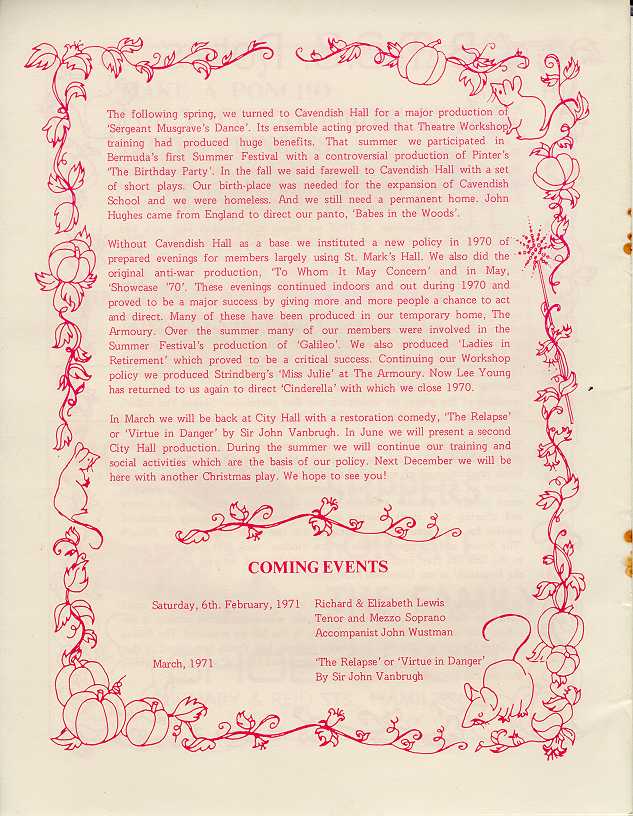 The following spring, we turned to Cavendish Hall for a major production of
'Sergeant Musgrave's Dance'. Its ensemble acting proved that Theatre Workshop
training had produced huge benefits. That summer we participated in
Bermuda's first Summer Festival with a controversial production of Pinter's
'The Birthday Party'. In the fall we said farewell to Cavendish Hall with a set
of short plays. Our birth-place was needed for the expansion of Cavendish
School and we were homeless. And we still need a permanent home. John
Hughes came from England to direct our panto, 'Babes in the Woods'.
Without Cavendish Hall as a base we instituted a new policy in 1970 of
prepared evenings for members largely using St. Mark's Hall. We also did the
original anti-war production, 'To Whom It May Concern' and in May,
'Showcase '70'. These evenings continued indoors and out during 1970 and
proved to be a major success by giving more and more people a chance to act
and direct. Many of these have been produced in our temporary home, The
Armoury. Over the summer many of our members were involved in the
Summer Festival's production of 'Galileo'. We also produced 'Ladies in
Retirement' which proved to be a critical success. Continuing our Workshop
policy we produced Strindberg's 'Miss Julie' at The Armoury. Now Lee Young
has returned to us again to direct 'Cinderella' with which we close 1970.
In March we will be back at City Hall with a restoration comedy, 'The Relapse'
or 'Virtue in Danger' by Sir John Vanbrugh. In June we will present a second
City Hall production. During the summer we will continue our training and
social activities which are the basis of our policy. Next December we will be
here with another Christmas play. We hope to see you!
COMING EVENTS
Saturday, 6th. February, 1971 Richard & Elizabeth Lewis
Tenor and Mezzo Soprano
Accompanist John Wustman
March, 1971 'The Relapse' or 'Virtue in Danger'
By Sir John Vanbrugh